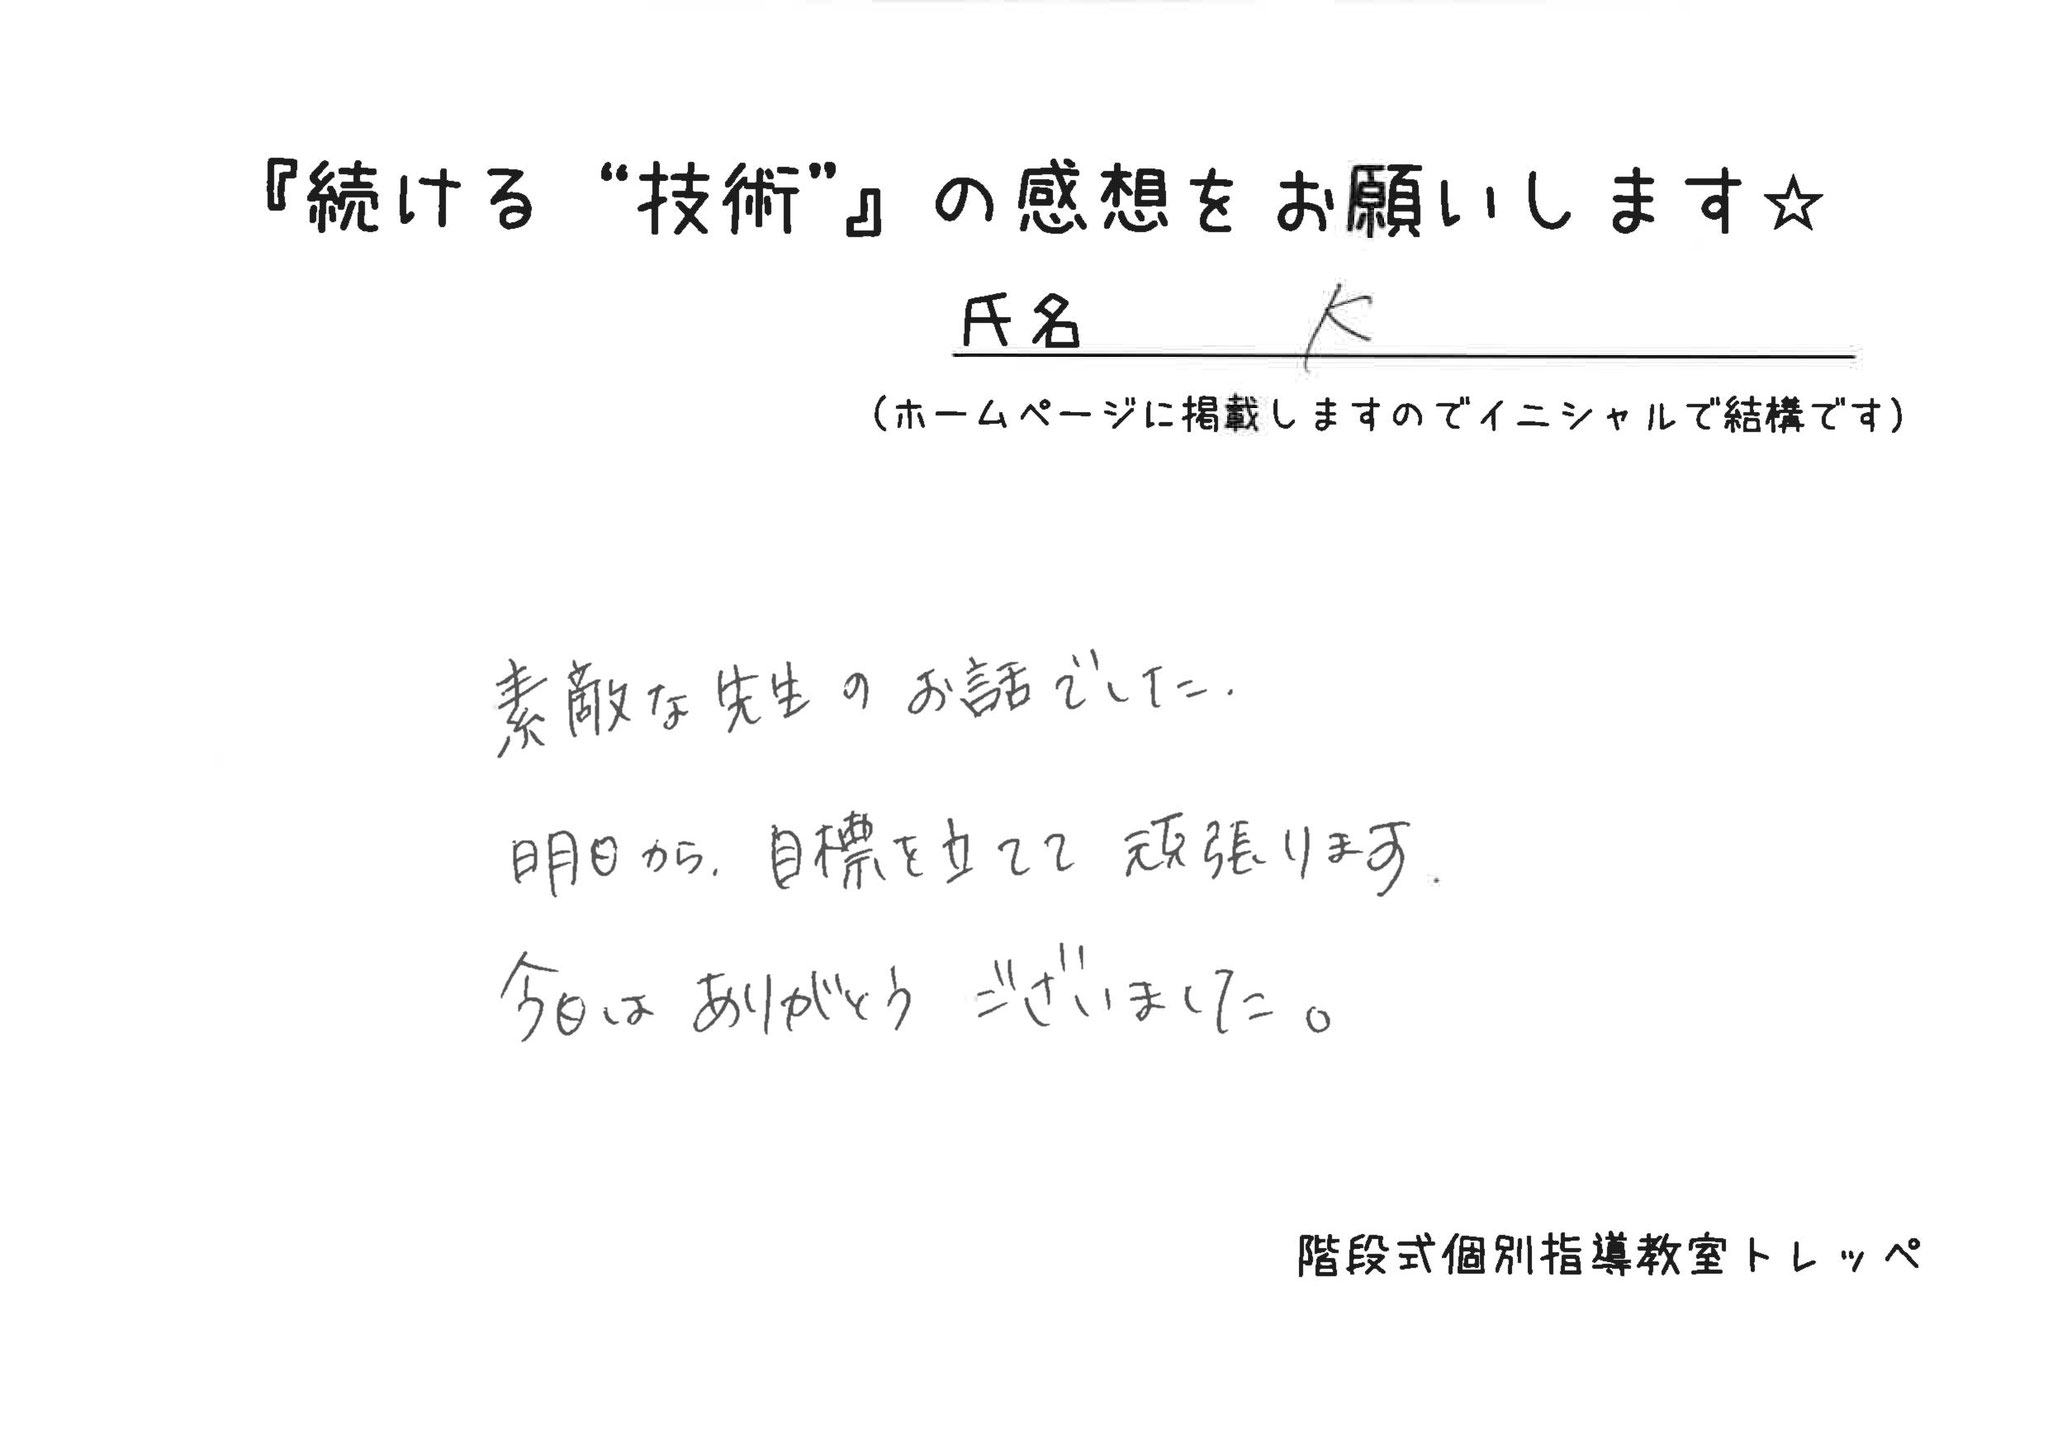 『続ける “技術”』の感想をお願いします☆
氏名 K
（ホームページに掲載しますのでイニシャルで結構です）
素敵な先生のお話でした.
明日から. 目標を立てて 頑張ります.
今日は ありがとう ございました。
階段式個別指導教室トレッペ